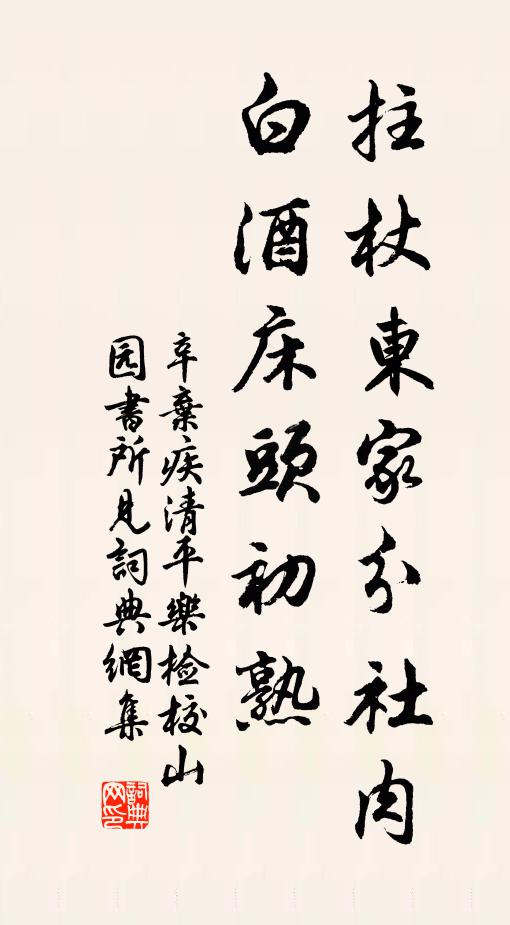 拄杖東家分社肉
白酒床頭初熟
辛棄疾清平樂检校山
园書所見詞典網集
詞典网印